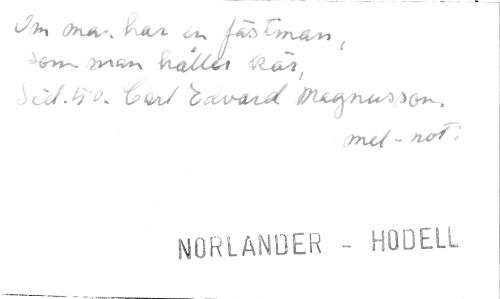 Om man har en fästman,
som man håller kär,
Sid. 50. Carl Edvard Magnusson.
mel-not.
NORLANDER - HODELL